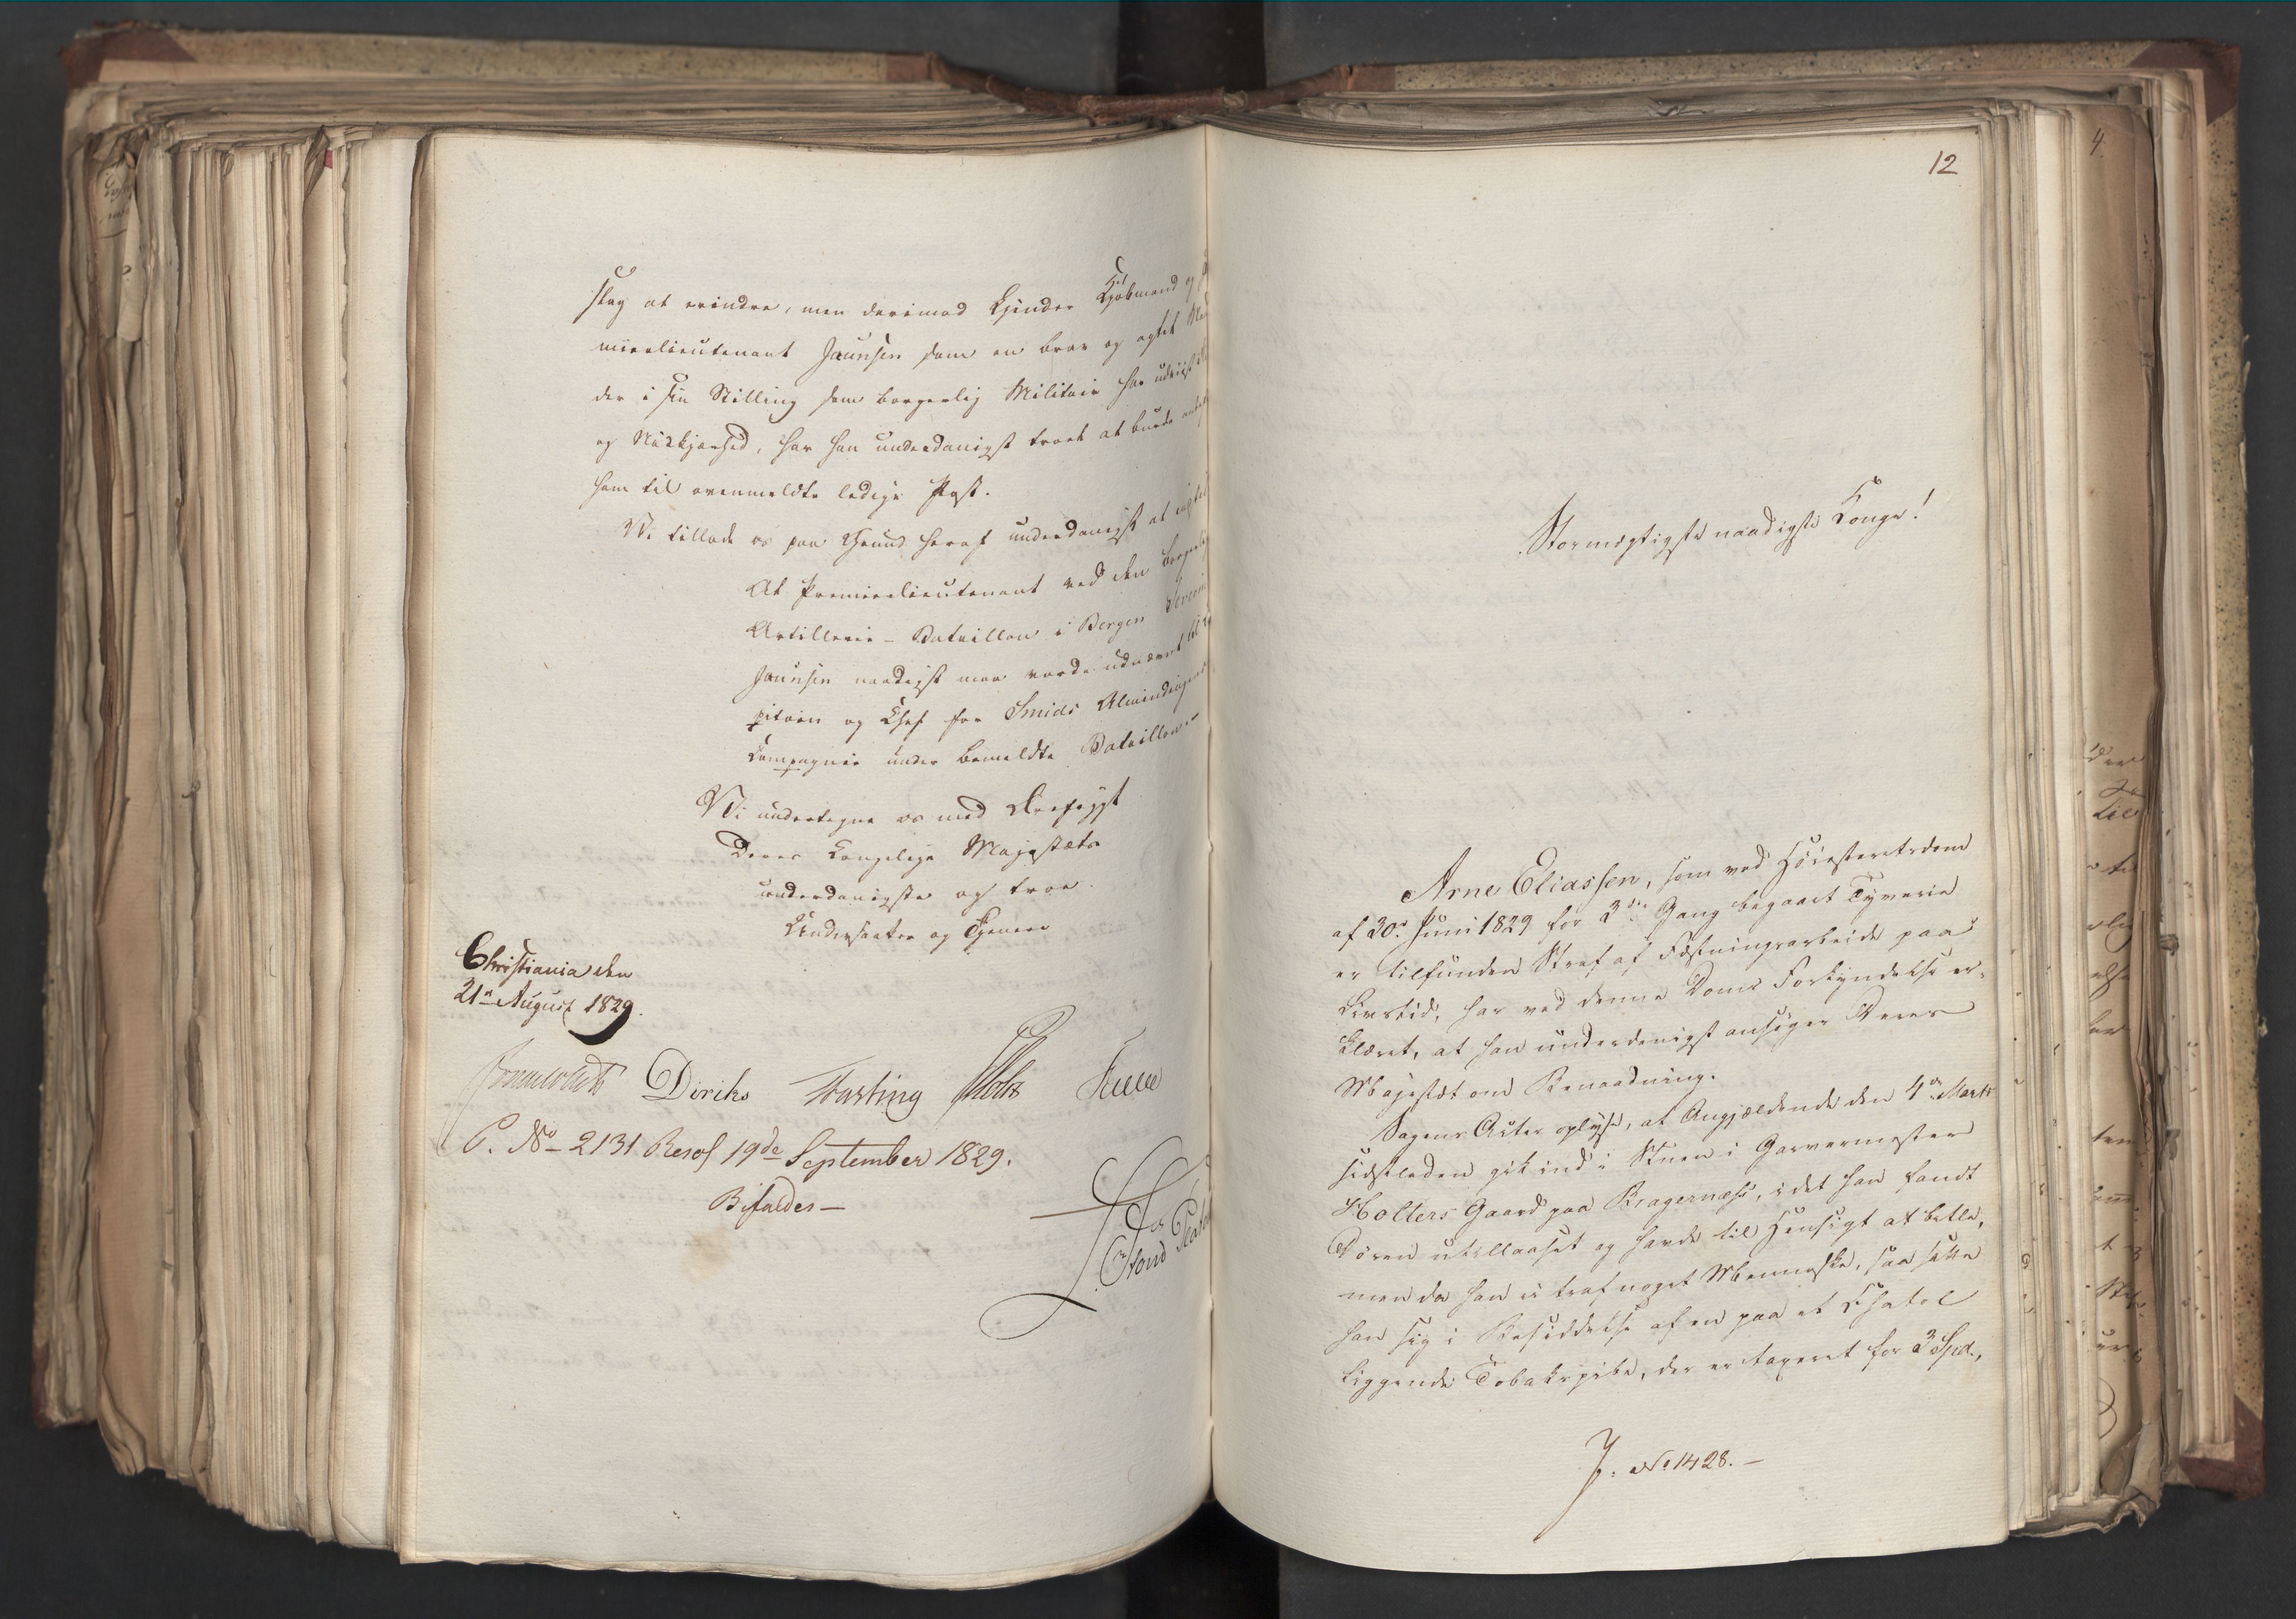 slag at erindre, men derimod kjender Kjøbmand og
mierlieutenant Jaunsen som en brav og agtet
der i sin Stilling som borgerlig Militair har udviist
og Nidkjærhed, har han underdanigst troet at burde
ham til ovenmeldte ledige Post.
Vi tillade os paa Grund heraf underdanigst at
At Premierlieutenant ved den
Artillerie-Bataillon i Bergen
Jaunsen naadigst maa vorde udnævnt til
pitain og Chef for Smids Almindingens
Compagnie under bemeldte Bataillon.
Vi undertegne os med Ærefrygt
Deres Kongelige Majestæts
underdanigste og troe
Undersaatter og Tjenere
Christiania den
21de August 1829.
Diriks Fasting Holst
P. No 2131 Resol 19de September 1829.
Bifaldes —
12
Stormægtigste naadigste Konge!
Arne Eliassen, som ved Høiesteretsdom
af 30te Juni 1829 for 3die Gang begaaet Tyverie
er tilfunden Straf af Fæstningsarbeide paa
Livstid, har ved denne Doms Forkyndelse er-
klæret, at han underdanigst ansøger Deres
Majestæt om Benaadning.
Sagens Acter oplyse, at Angjældende den 4de Marts
sidstleden gik ind i Stuen i Garvermester
Holters Gaard paa Bragernæss, idet han fandt
Døren utillaaset og havde til Hensigt at betle,
men da han ei traf noget Menneske, saa satte
han sig i Besiddelse af en paa et Chatol
liggende Tobakspibe, der er taxeret for 3 Spd.,
J. No 1428. —